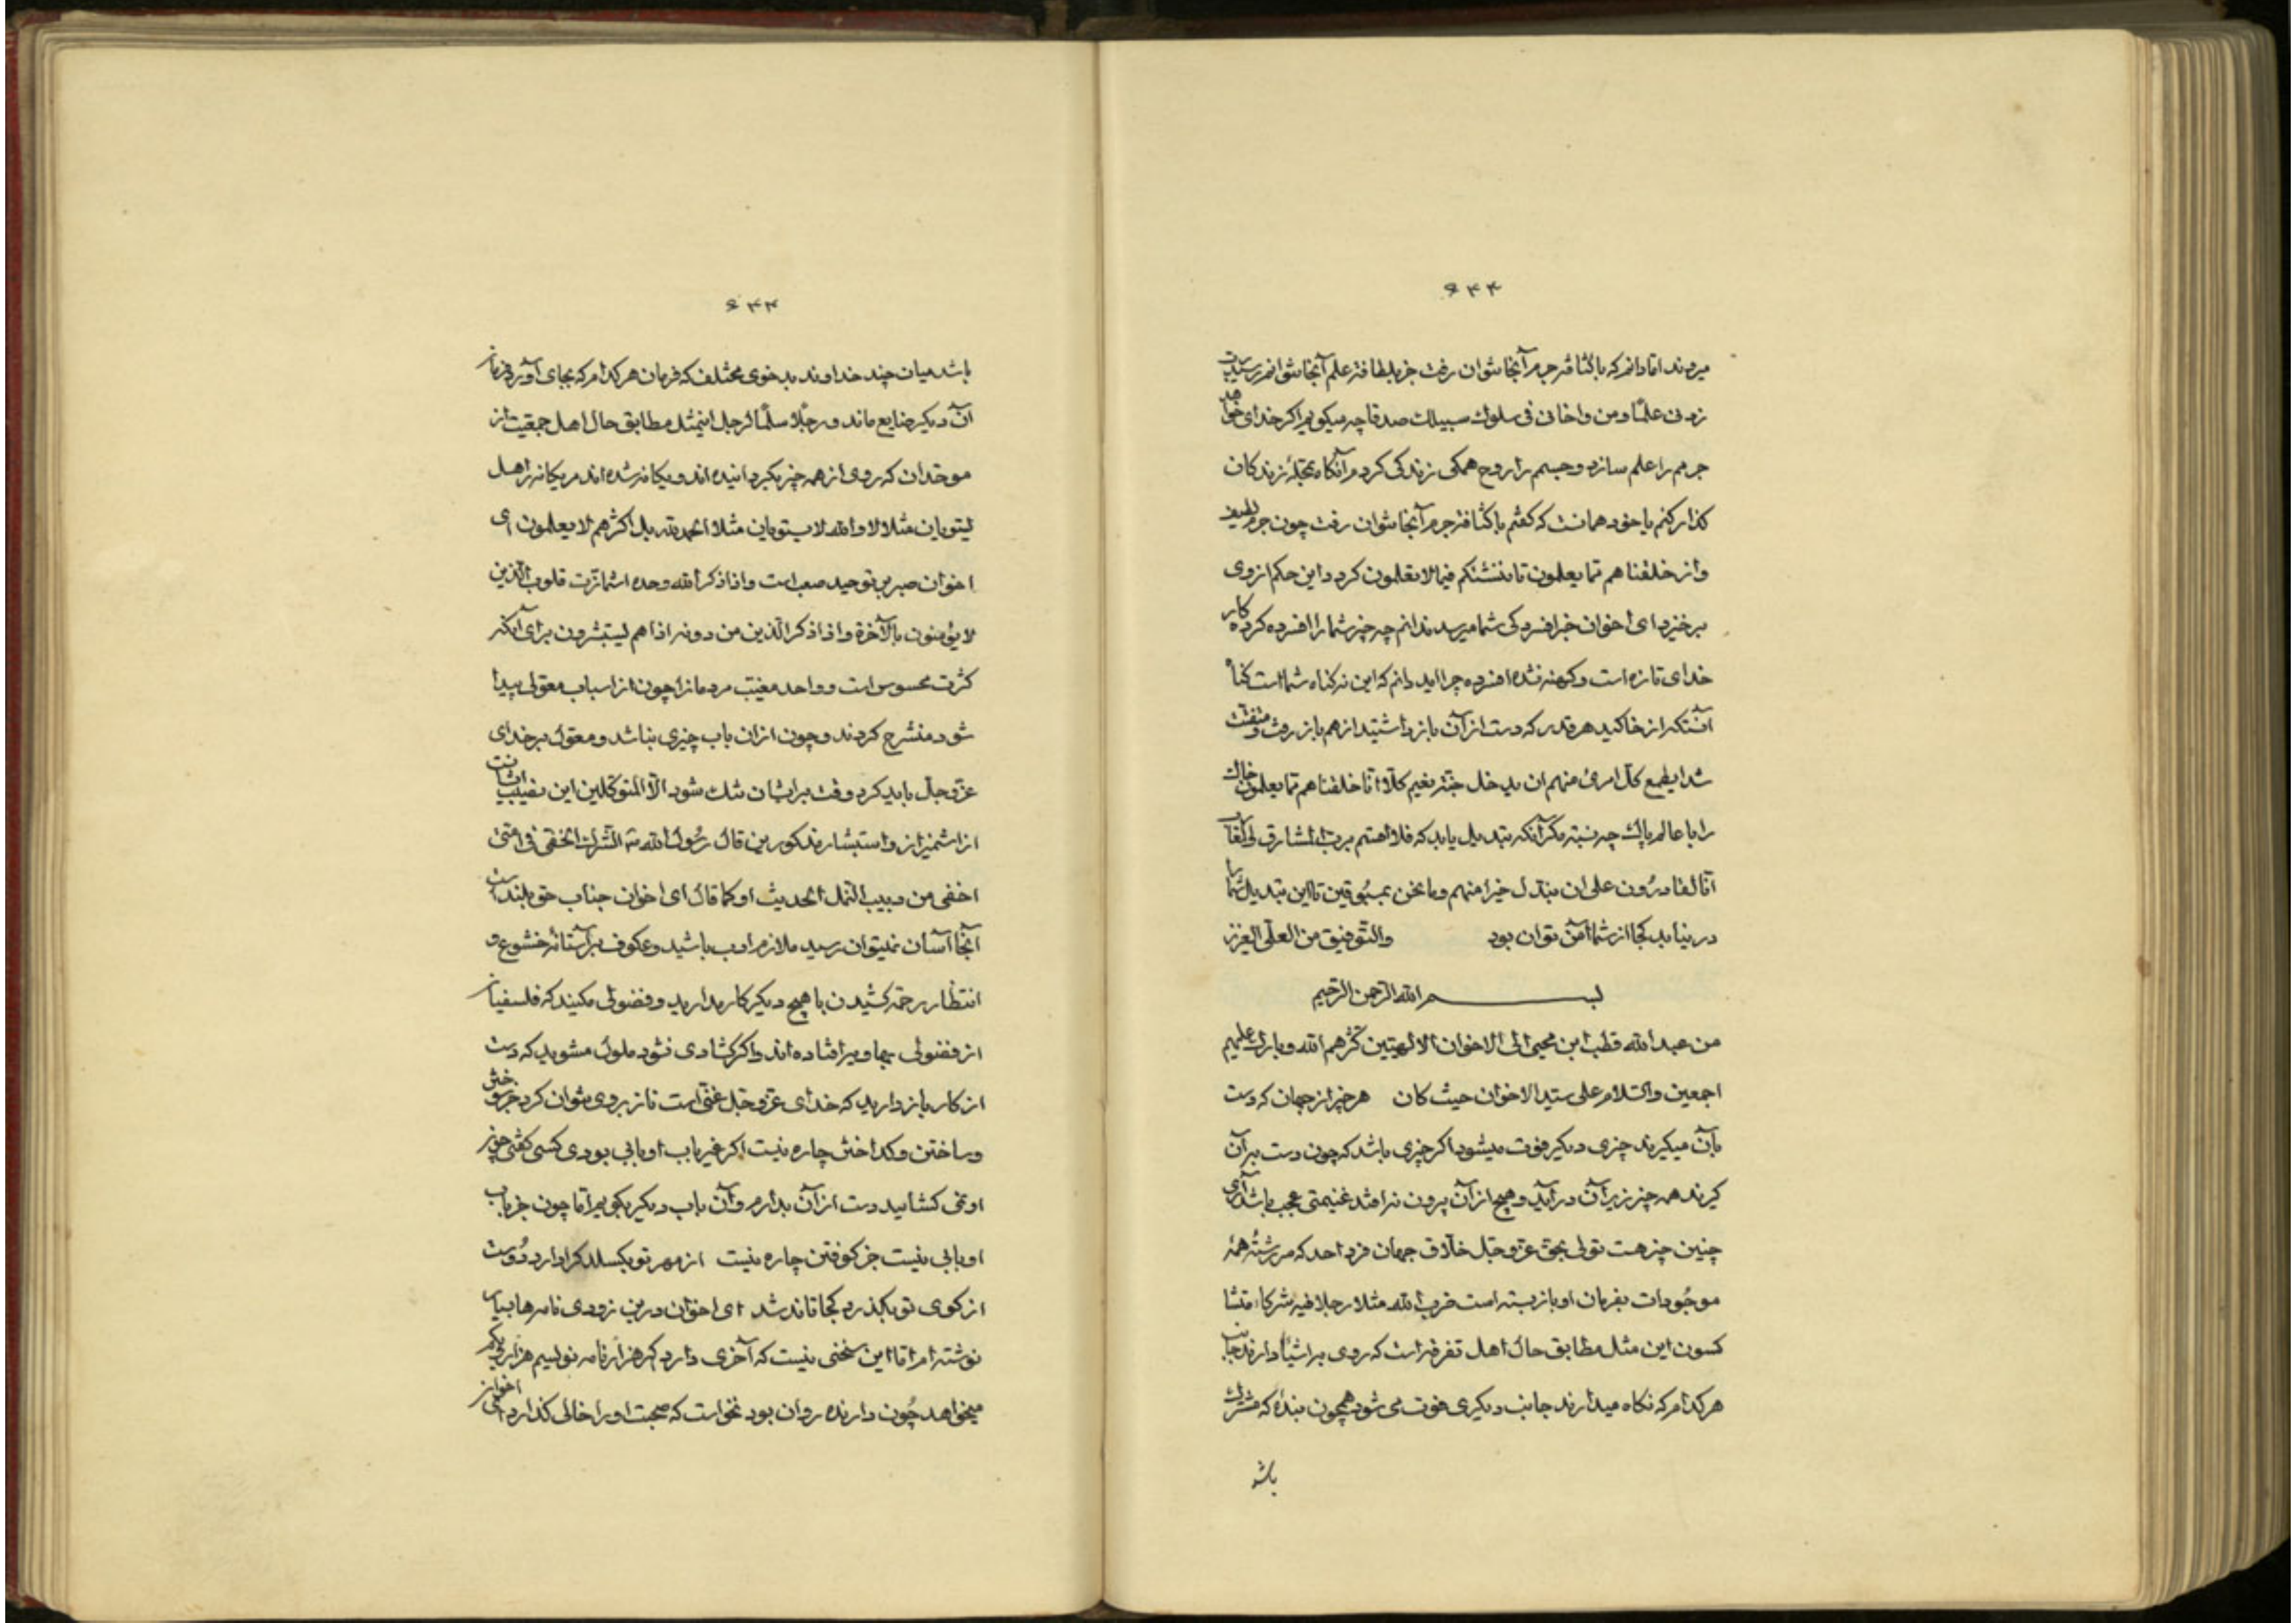 ۶۴۴
میروند اما دانم که باکثافة جرم آنجا نتوان رفت جز بلطافة علم آنجا نتوانم رسید رب
زدنی علما و من واخانی فی سلوک سبیلک صدقا چه میکویم اکر خدای خواهد
جرم را علم سازد و جسم را روح همکی زندکی کردم آنکاه بمحلهٔ زندکان
کذار کنم یا خود همانست که کفتم باکثافة جرم آنجا نتوان رفت چون جرم لطیف
وانا خلقناهم مما یعلمون تا ننشئکم فیما لا تعلمون کردد این حکم از وی
برخیزد ای اخوان خبر افسردکی شما میرسد ندانم چه چیز شما را افسرده کرده کار
خدای تازه است و کهنه نشده افسرده چرااید دانم که این نه کناه شماست کناه
آنستکه از خاکید هر قدر که دست از آن بازداشتید از هم باز رفت و متفتت
شد ایطمع کل امرئ منهم ان یدخل جنة نعیم کلا انا خلقناهم مما یعلمون خاک
را با عالم پاک چه نسبة مکر آنکه تبدیل یابد که فلا اقسم برب المشارق والمغارب
انا لقادرون علی ان نبدل خیرا منهم وما نحن بمسبوقین تا این تبدیل شما را
در نیابد کجا از شما آمن توان بود والتوفیق من العلی العزیز
بسم الله الرحمن الرحیم
من عبدالله قطب ابن محیی الی الاخوان الالهیین کثرهم الله وبارک علیهم
اجمعین والسلام علی سید الاخوان حیث کان هر چیز از جهان که دست
بآن میکیرند چیزی دیکر فوت میشود اکر چیزی باشد که چون دست بر آن
کیرند همه چیز زیر آن درآید و هیچ از آن بیرون نرافتد غنیمتی عجب باشد آری
چنین چیز هست تولی بحق عز و جل خلاق جهان فرد احد که سررشتهٔ همهٔ
موجودات بفرمان او باز بسته است ضرب الله مثلا رجلا فیه شرکاء متشا
کسون این مثل مطابق حال اهل تفرقه است که روی بر اشیا دارند جانب
هر کدام که نکاه میدارند جانب دیکری فوت می شود همچون بندهٔ که مشترک
باشد
۶۴۴
باشد میان چند خداوند بدخوی مختلف که فرمان هر کدام که بجای آورد فرمان
آن دیکر ضایع ماند ورجلا سلما لرجل اینمثل مطابق حال اهل جمعیت از
موحدان که روی از همه چیز بکردانیده اند و یکانه شده اند مر یکانه را هل
یستویان مثلا لا والله لا یستویان مثلا الحمد لله بل اکثرهم لا یعلمون ای
اخوان صبر بر توحید صعب است واذا ذکر الله وحده اشمأزت قلوب الذین
لا یؤمنون بالآخرة واذا ذکر الذین من دونه اذا هم یستبشرون برای آنکه
کثرت محسوس است و واحد مغیب مردمانرا چون از اسباب معولی پیدا
شود منشرح کردند و چون از ان باب چیزی نباشد و معول بر خدای
عز و جل باید کرد وقت بر ایشان تنک شود الا المتوکلین این نصیب ایشانست
از اشمئزاز و استبشار مذکورین قال رسول الله ص الشرک الخفی فی امتی
اخفی من دبیب النمل الحدیث او کما قال ای اخوان جناب حق بلند است
آنجا آسان نمیتوان رسید ملازم ادب باشید و عکوف بر آستانهٔ خشوع و
انتظار رحمة کشیدن با هیچ دیکر کار مدارید و فضولی مکنید که فلسفیان
از فضولی بهاویه افتاده اند و اکر کشادی نشود ملول مشوید که دست
از کار بازدارید که خدای عز و جل غنی است ناز بروی نتوان کرد جز سوختن
و ساختن و کداختن چاره نیست اکر غیر باب او بابی بودی کسی کفتی چون
او نمی کشاید دست از آن بدارم و آن باب دیکر بکوبم اما چون جز باب
او بابی نیست جز کوفتن چاره نیست از مهر تو بکسلد کرا دارد دوست
از کوی تو بکذرد کجا تاند شد ای اخوان درین زودی نامه ها بسیار
نوشته ام اما این سخنی نیست که آخری دارد کر هزار نامه نویسم هزار دیکر
میخواهد چون دارنده روان بود نخواست که صحبت او را خالی کذارد اخوان